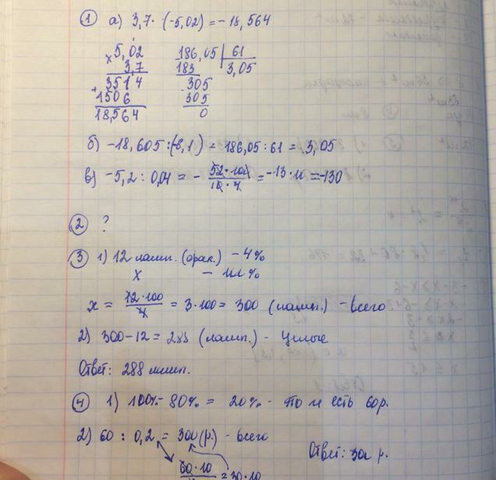 ① а) 3,7 · (-5,02) = -18,564
× 5,02
3,7
3514
+ 1506
18,564
186,05 | 61
183 3,05
305
305
0
б) -18,605 : (-6,1) = 186,05 : 61 = 3,05
в) -5,2 : 0,04 = - 52·100/10·4 = -13·10 = -130
② ?
③ 1) 12 ламп. (брак.) - 4%
x - 100%
x = 12·100/4 = 3·100 = 300 (ламп.) - всего
2) 300-12 = 288 (ламп.) - целые
Ответ: 288 ламп.
④ 1) 100% - 80% = 20% - то и есть 60р.
2) 60 : 0,2 = 300 (р.) - всего
60·10 = 30·10
Ответ: 300 р.